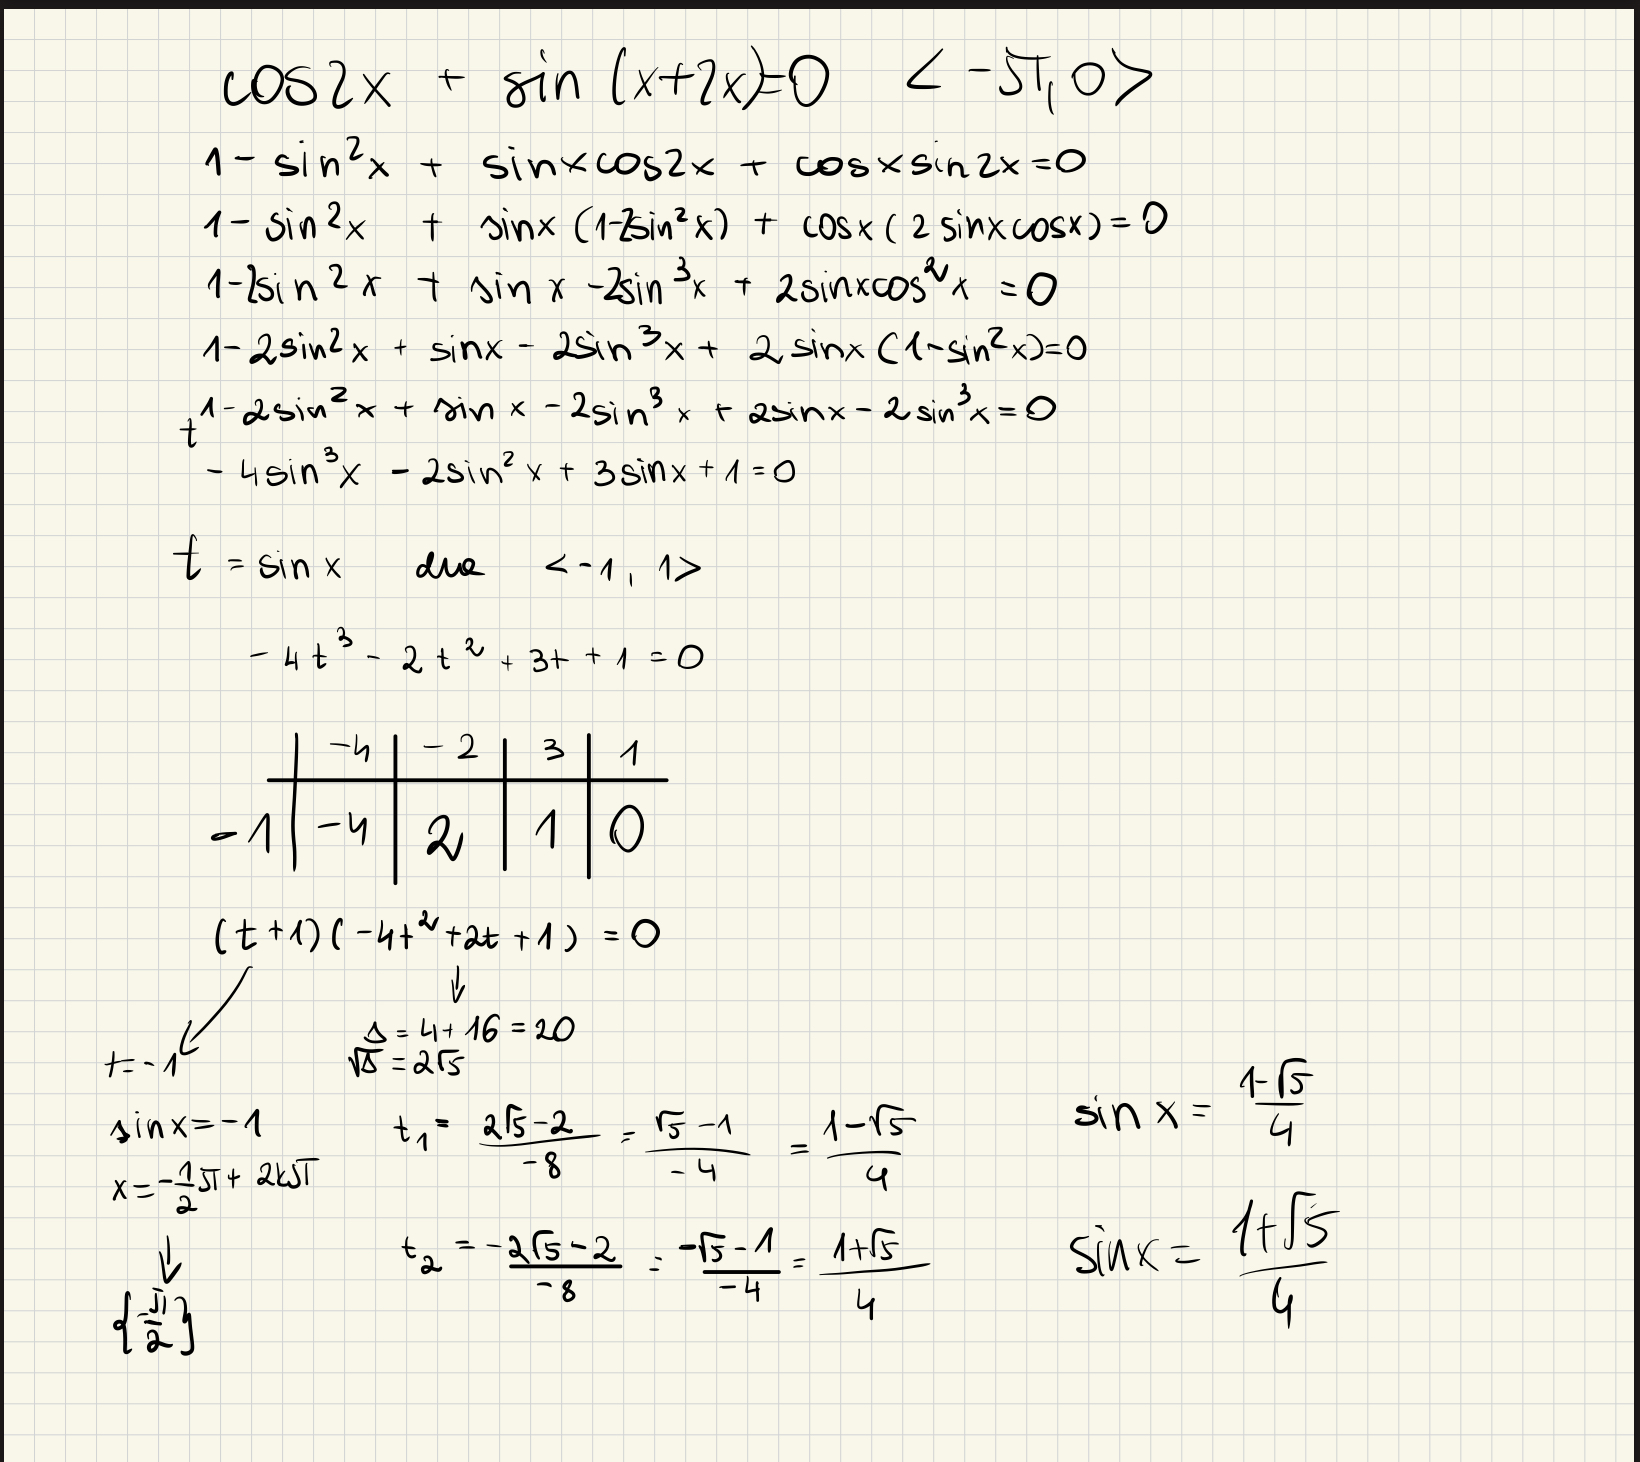 cos2x + sin (x+2x)=0 <-π, 0>
1 - sin²x + sinxcos2x + cosxsin2x=0
1 - sin²x + sinx (1-2sin²x) + cosx( 2 sinxcosx) = 0
1-2sin²x + sin x -2sin³x + 2sinxcos²x = 0
1-2sin²x + sinx - 2sin³x + 2 sinx (1-sin²x)=0
1-2sin²x + sin x - 2sin³x + 2sinx - 2sin³x = 0
t
- 4sin³x - 2sin²x + 3sinx + 1 = 0
t = sin x dla <-1, 1>
- 4t³ - 2t² + 3t + 1 = 0
-4 -2 3 1
-1 -4 2 1 0
(t+1)(-4t²+2t+1) = 0
Δ = 4+16 = 20
t=-1 √Δ = 2√5
sinx=-1 t₁ = 2√5-2/-8 = √5-1/-4 = 1-√5/4 sin x = 1-√5/4
x=-1/2π+ 2kπ
t₂ = -2√5-2/-8 = -√5-1/-4 = 1+√5/4 sinx = 1+√5/4
{-π/2}